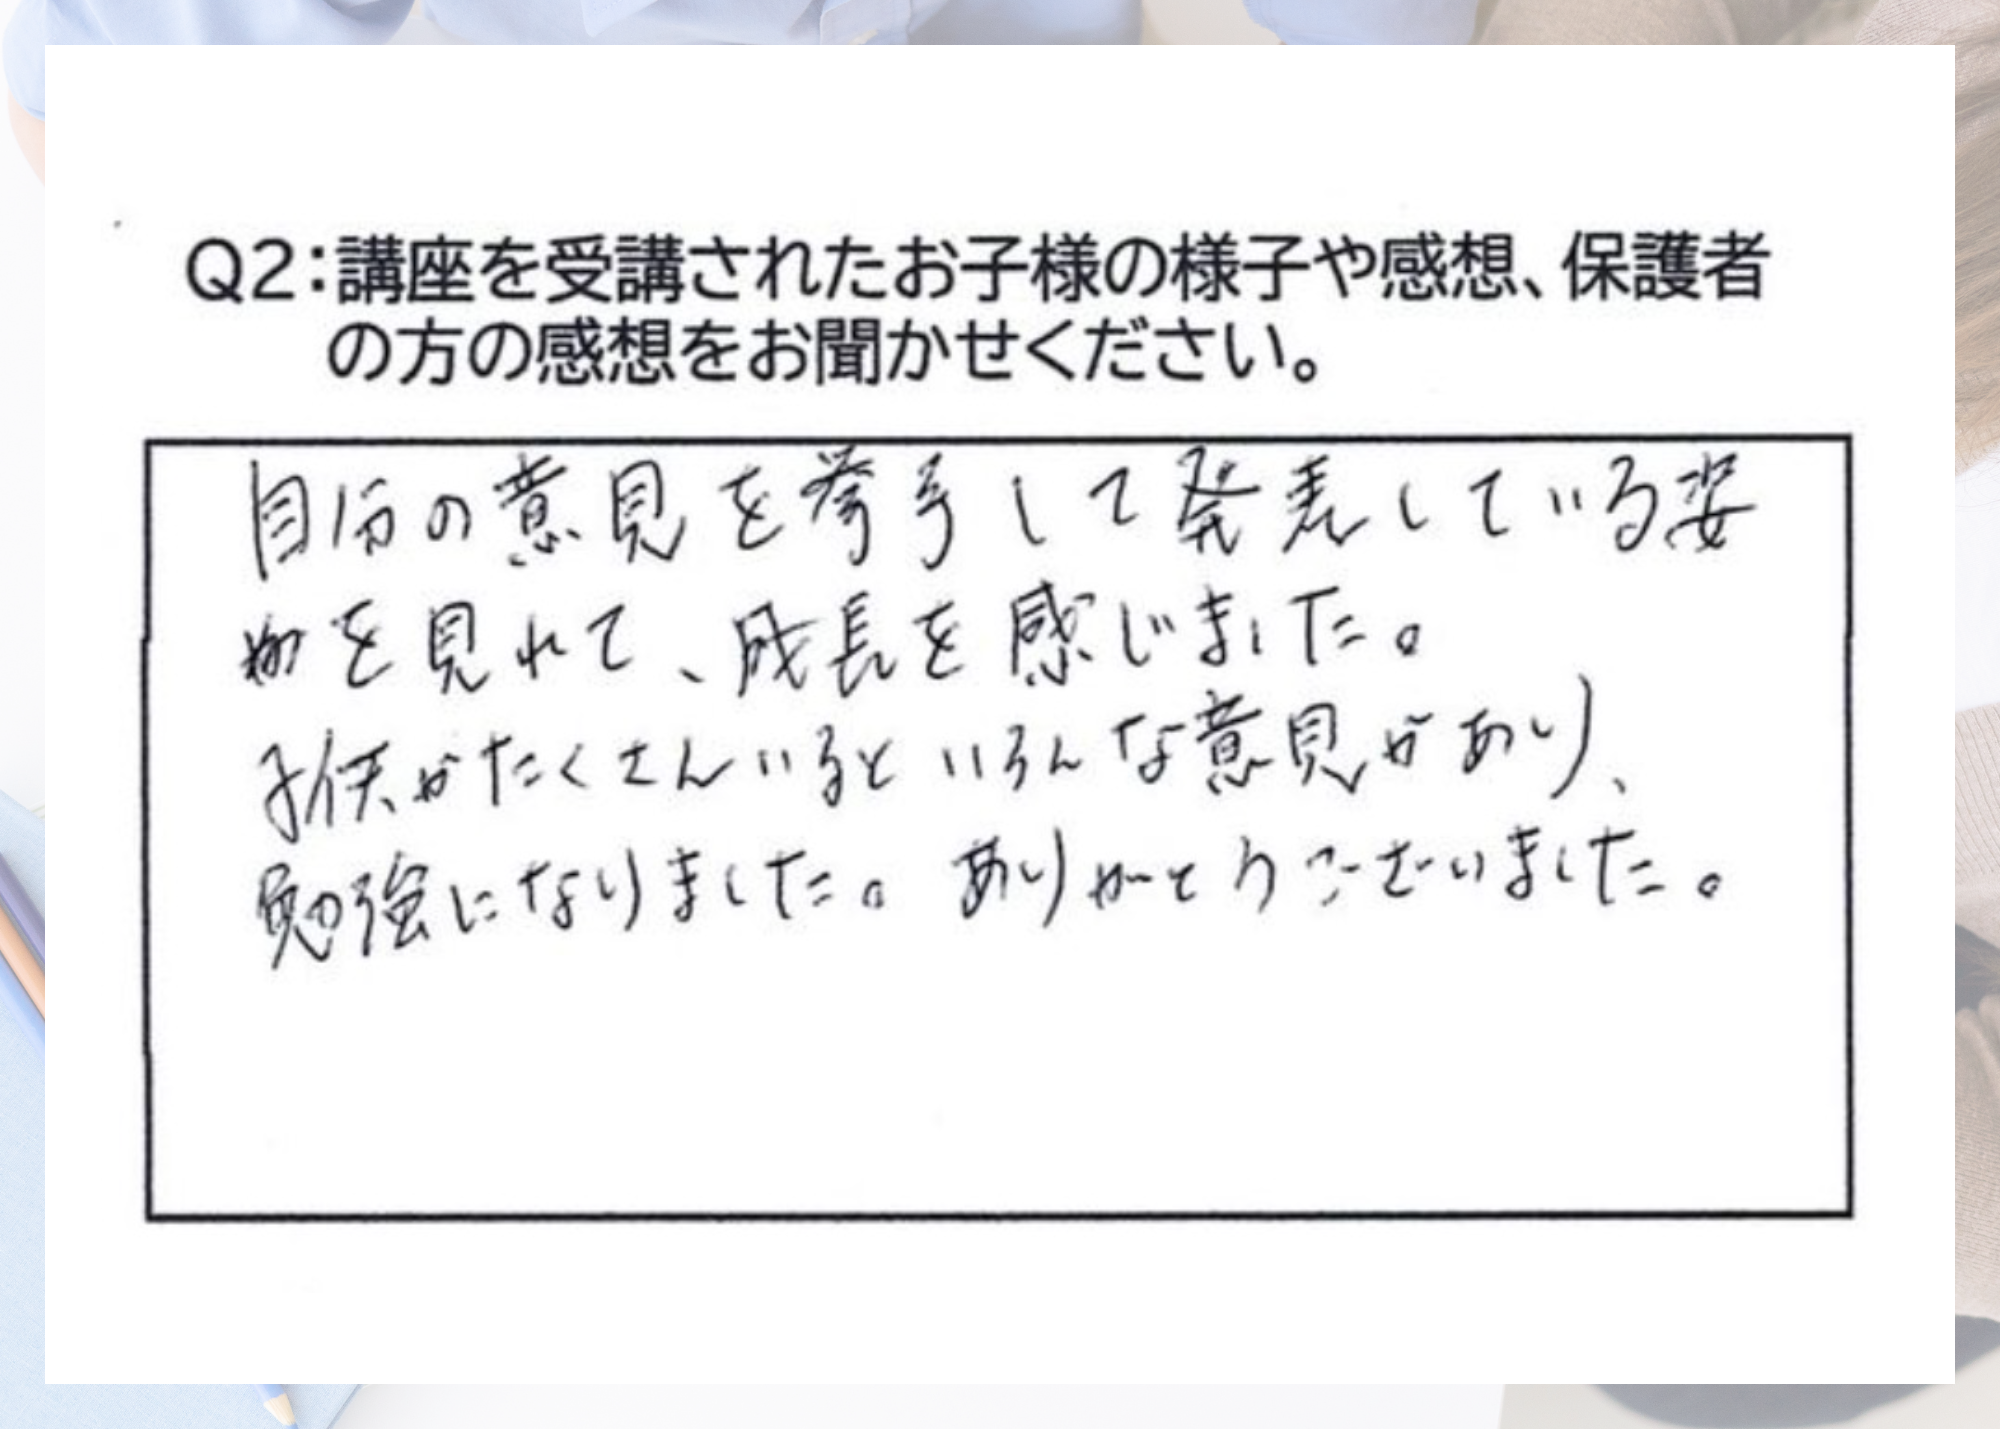 Q2：講座を受講されたお子様の様子や感想、保護者
の方の感想をお聞かせください。
自分の意見を挙手して発表している姿
を見れて、成長を感じました。
子供がたくさんいるといろんな意見があり、
勉強になりました。ありがとうございました。